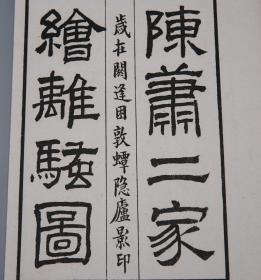 陳蕭二家
繪離騷圖
歲在閼逢困敦蟫隐廬影印